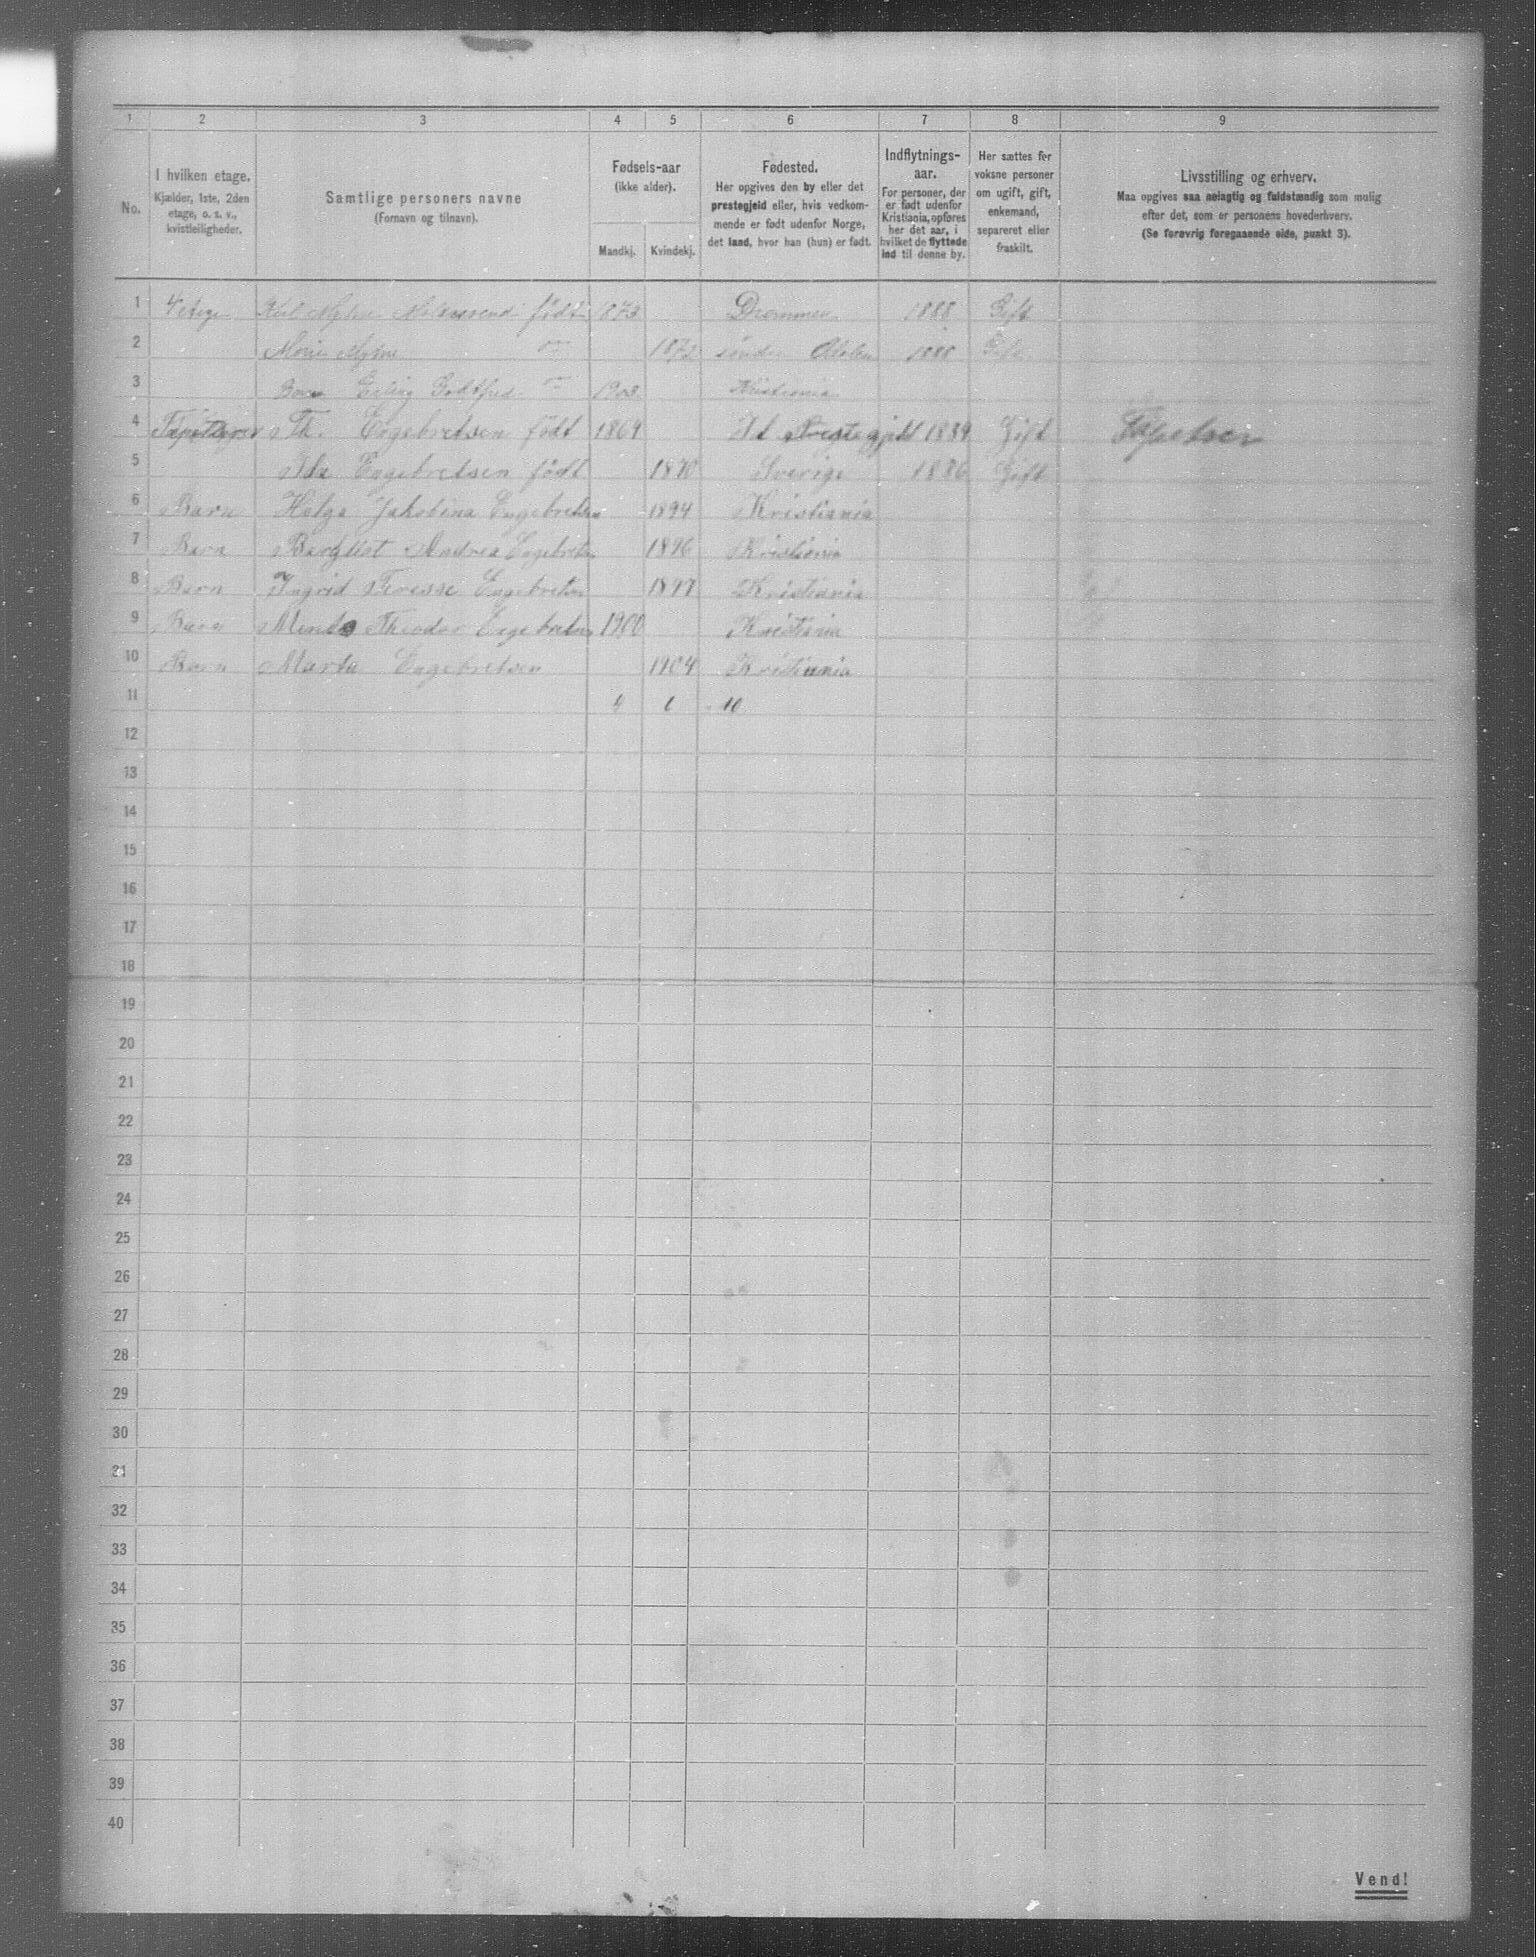 1 2 3 4 5 6 7 8 9
No.
I hvilken etage.
Kjælder, 1ste, 2den
etage, o. s. v.,
kvistleiligheder.
Samtlige personers navne
(Fornavn og tilnavn).
Fødsels-aar
(ikke alder).
Mandkj. Kvindekj.
Fødested.
Her opgives den by eller det
prestegjeld eller, hvis vedkom-
mende er født udenfor Norge,
det land, hvor han (hun) er født.
Indflytnings-
aar.
For personer, der
er født udenfor
Kristiania, opføres
her det aar, i
hvilket de flyttede
ind til denne by.
Her sættes for
voksne personer
om ugift, gift,
enkemand,
separeret eller
fraskilt.
Livsstilling og erhverv.
Maa opgives saa nøiagtig og fuldstændig som mulig
efter det, som er personens hovederhverv.
(Se forøvrig foregaaende side, punkt 3).
1 født 1873 Drammen 1888 Gift
2 Marie 1872 søndre 1888 Gift
3 Barn Erling Godtfred 1903 Kristiania
4 Th. Engebretsen født 1864 Prestegjeld 1889 Gift
5 Ida Engebretsen født 1870 Sverige 1886 Gift
6 Barn Helga Jakobina Engebretsen 1894 Kristiania
7 Barn Andrea Engebretsen 1896 Kristiania
8 Barn Ingrid Teresse Engebretsen 1897 Kristiania
9 Barn Theodor Engebretsen 1900 Kristiania
10 Barn Marta Engebretsen 1904 Kristiania
11 4 6 10
12
13
14
15
16
17
18
19
20
21
22
23
24
25
26
27
28
29
30
31
32
33
34
35
36
37
38
39
40
Vend!